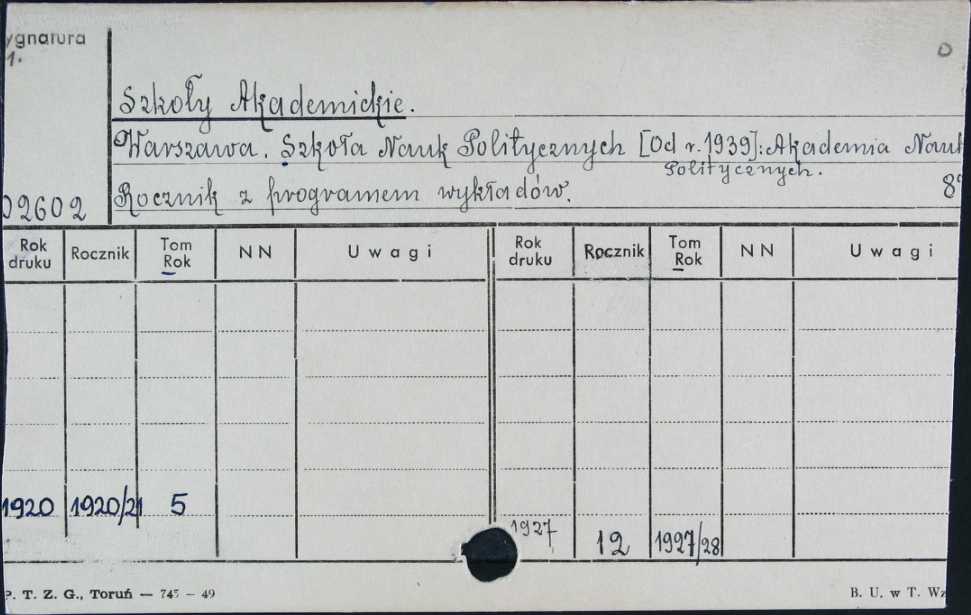 ygnatura
1.
02602
Szkoły Akademickie.
Warszawa. Szkoła Nauk Politycznych [Od r. 1939]: Akademia Nauk
Politycznych.
Rocznik z programem wykładów. 8°
Rok druku Rocznik Tom Rok NN Uwagi Rok druku Rocznik Tom Rok NN Uwagi
1920 1920/21 5
1927 12 1927/28
P. T. Z. G., Toruń — 745 – 49 B. U. w T. Wz